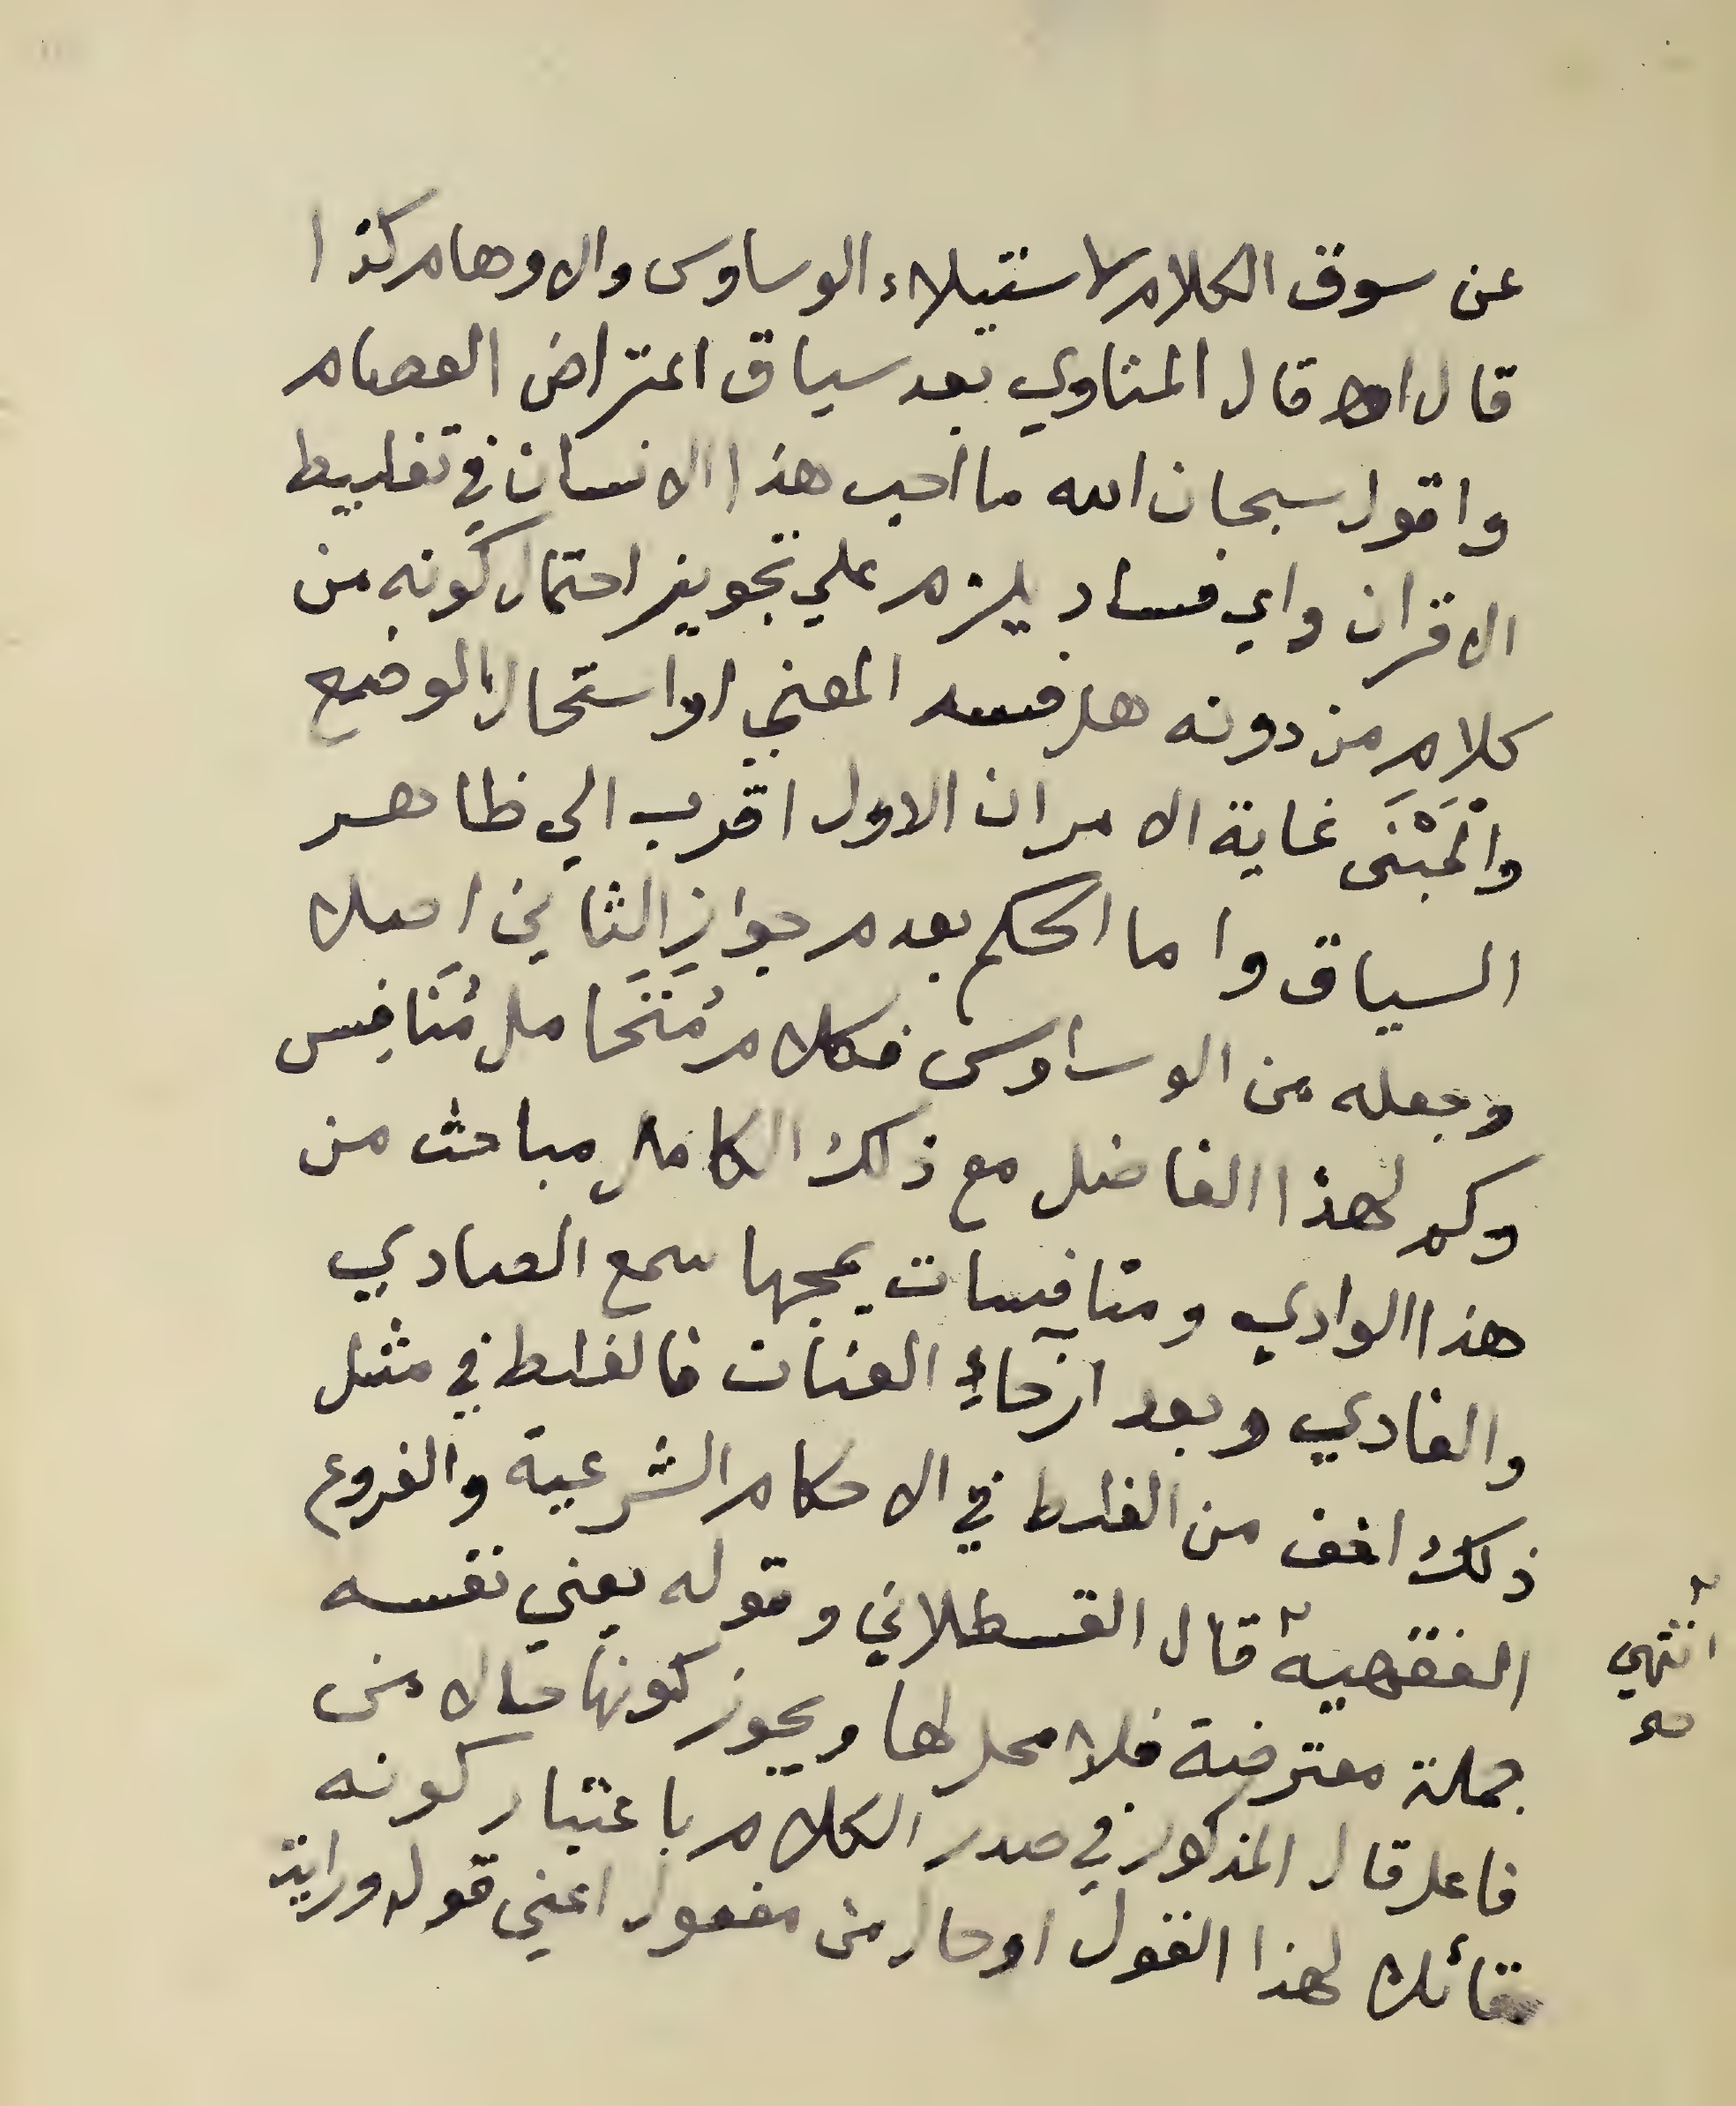 عن سوق الكلام لاستيلاء الوساوس والاوهام كذا
قال اولا قال المناوي بعد سياق اعتراض العصام
واقول سبحان الله ما احب هذا الانسان في تغليط
الاقران واي فساد يلزم علي تجويز احتمال كونه من
كلام من دونه هل فسد المعني او استحال الوضع
والْمَبْنَى غاية الامر ان الاول اقرب الي ظاهر
السياق واما الحكم بعدم جواز الثاني اصلا
وجعله من الوساوس فكلام مُتَحَامل مُنَافِس
وكم لهذا الفاضل مع ذلك الكامل مباحث من
هذا الوادي ومنافسات يمجها سمع الصادي
والغادي وبعد ارخاءِ العنان فالغلط في مثل
ذلك اخف من الغلط في الاحكام الشرعية والفروع
الفقهية قال القسطلاني وقوله يعني نفسه
جملة معترضة فلا محل لها ويجوز كونها حالا من
فاعل قال المذكور في صدر الكلام باعتبار كونه
قائلا لهذا القول او حال من مفعول اعني قوله ورايت
انتهي
صح